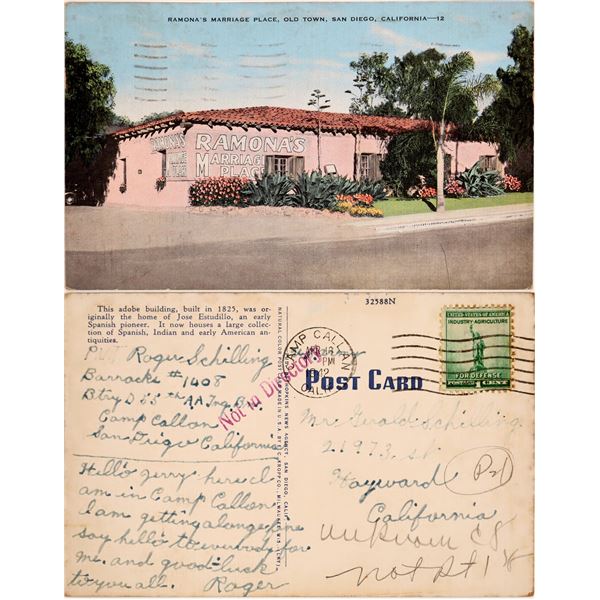 RAMONA'S MARRIAGE PLACE, OLD TOWN, SAN DIEGO, CALIFORNIA—12
RAMONA'S
MARRIAGE
PLACE
32588N
This adobe building, built in 1825, was or-
iginally the home of Jose Estudillo, an early
Spanish pioneer. It now houses a large collec-
tion of Spanish, Indian and early American an-
tiquities.
Pvt Roger Schilling
Barracks #1408
Btry D 55th AA Tng Bn
Camp Callan
San Diego California
Hello Jerry here I
am in Camp Callan
I am getting along fine
say hello to everybody for
me. and good luck
to you all. Roger
NATURAL COLOR POST CARD MADE IN U.S.A. BY E. C. KROPP CO., MILWAUKEE, WIS.
HOPKINS NEWS AGENCY, SAN DIEGO, CAL.
Not in Directory
CAMP CALLAN
PM
CALIF.
POST CARD
UNITED STATES OF AMERICA
INDUSTRY AGRICULTURE
FOR DEFENSE
POSTAGE 1 CENT
Mr. Gerald Schilling
21973, st.
Hayward
California
unknown C8
not Rt 1